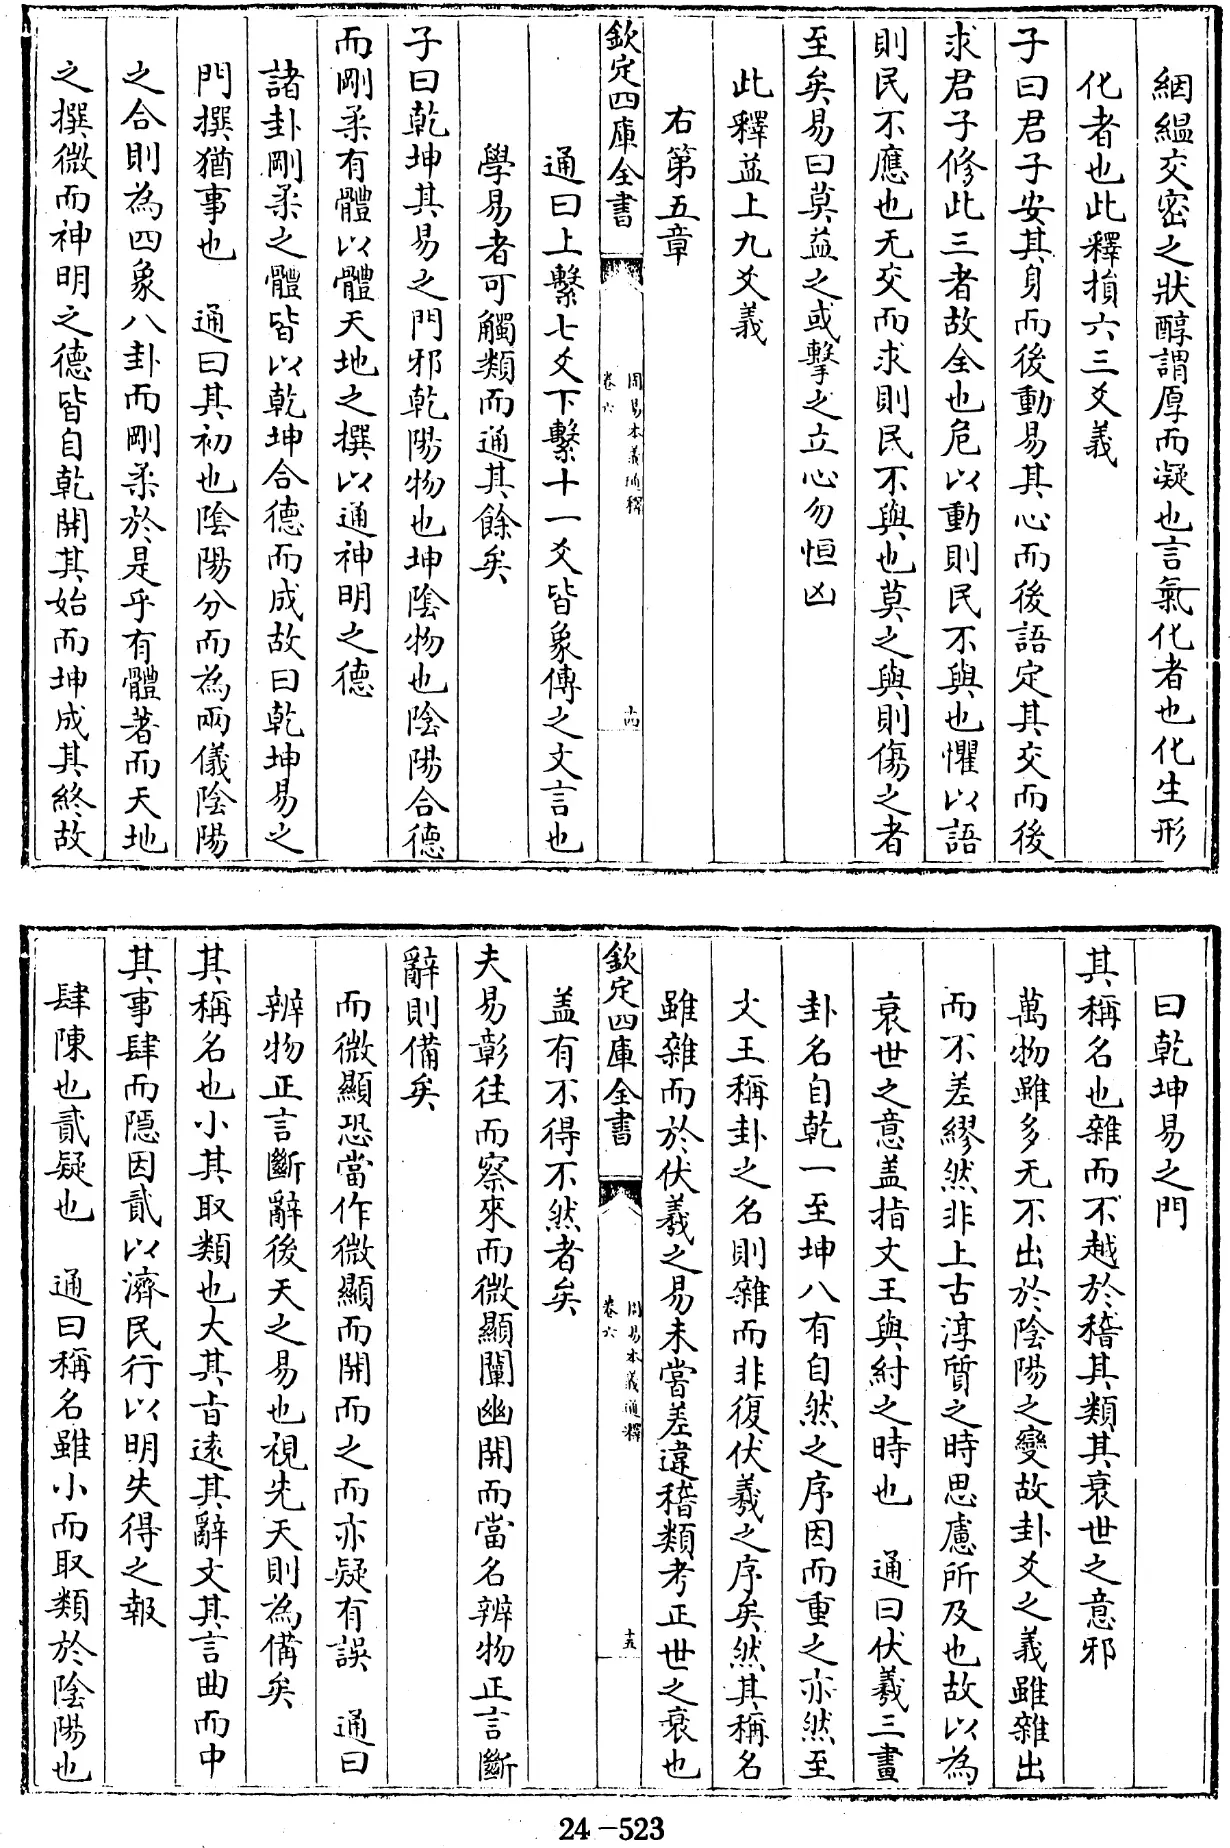 絪緼交密之狀醇謂厚而凝也言氣化者也化生形
化者也此釋損六三爻義
子曰君子安其身而後動易其心而後語定其交而後
求君子修此三者故全也危以動則民不與也懼以語
則民不應也无交而求則民不與也莫之與則傷之者
至矣易曰莫益之或擊之立心勿恒凶
此釋益上九爻義
右第五章
欽定四庫全書
周易本義通釋
卷六
十四
通曰上繫七爻下繫十一爻皆象傳之文言也
學易者可觸類而通其餘矣
子曰乾坤其易之門邪乾陽物也坤陰物也陰陽合德
而剛柔有體以體天地之撰以通神明之德
諸卦剛柔之體皆以乾坤合德而成故曰乾坤易之
門撰猶事也　通曰其初也陰陽分而為兩儀陰陽
之合則為四象八卦而剛柔於是乎有體著而天地
之撰微而神明之德皆自乾開其始而坤成其終故
曰乾坤易之門
其稱名也雜而不越於稽其類其衰世之意邪
萬物雖多无不出於陰陽之變故卦爻之義雖雜出
而不差繆然非上古淳質之時思慮所及也故以為
衰世之意盖指文王與紂之時也　通曰伏羲三畫
卦名自乾一至坤八有自然之序因而重之亦然至
文王稱卦之名則雜而非復伏羲之序矣然其稱名
雖雜而於伏羲之易未嘗差違稽類考正世之衰也
欽定四庫全書
周易本義通釋
卷六
十五
盖有不得不然者矣
夫易彰往而察來而微顯闡幽開而當名辨物正言斷
辭則備矣
而微顯恐當作微顯而開而之而亦疑有誤　通曰
辨物正言斷辭後天之易也視先天則為備矣
其稱名也小其取類也大其旨遠其辭文其言曲而中
其事肆而隱因貳以濟民行以明失得之報
肆陳也貳疑也　通曰稱名雖小而取類於陰陽也
24-523